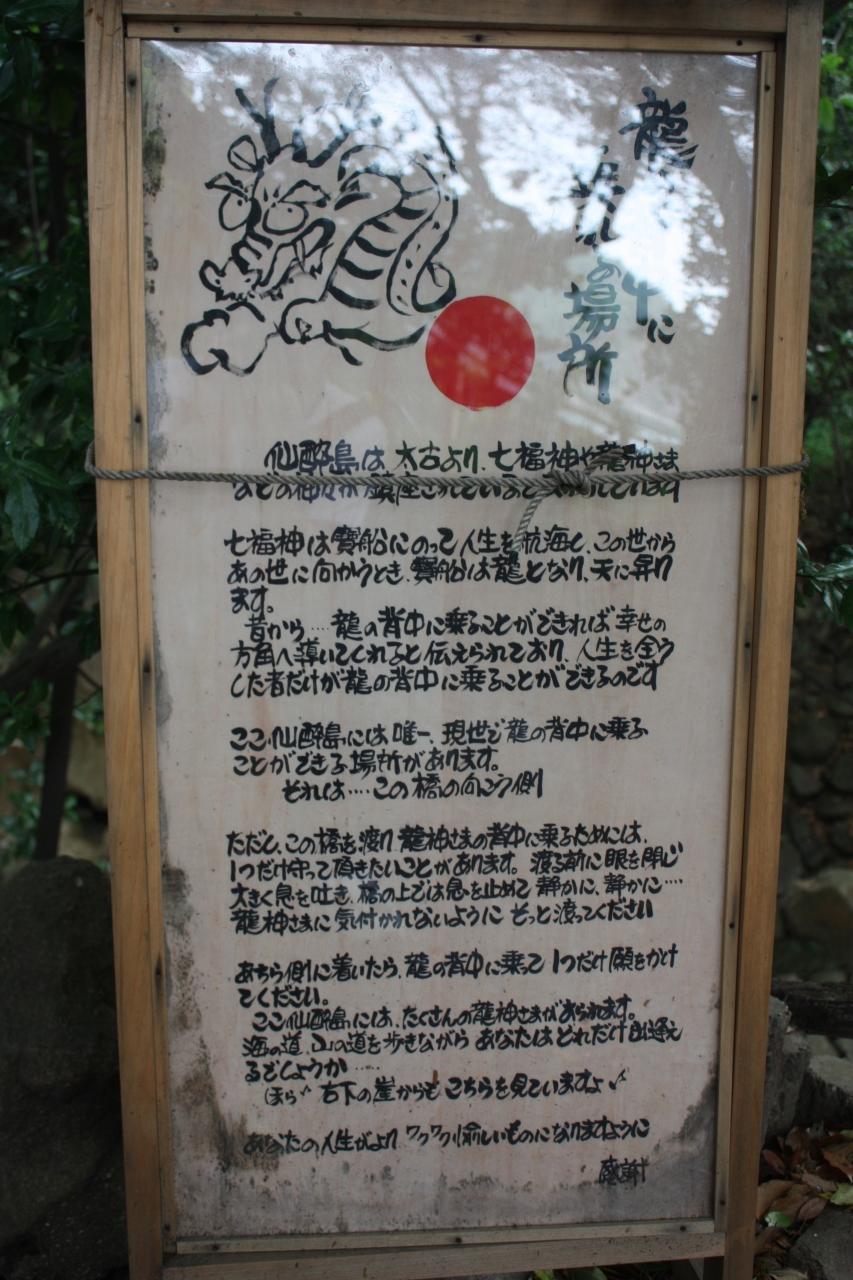 龍の背中に
乗れる場所
仙酔島は、太古より、七福神や龍神さま
などの神々が鎮座されていると
七福神は寶船にのって人生を航海し、この世から
あの世に向かうとき、寶船は龍となり、天に昇り
ます。
昔から‥‥龍の背中に乗ることができれば幸せの
方角へ導いてくれると伝えられており、人生を全う
した者だけが龍の背中に乗ることができるのです
ここ仙酔島には唯一、現世で龍の背中に乗る
ことができる場所があります。
それは‥‥この橋の向こう側
ただし、この橋を渡り龍神さまの背中に乗るためには、
1つだけ守って頂きたいことがあります。渡る前に眼を閉じ
大きく息を吐き、橋の上では息を止めて静かに、静かに‥‥
龍神さまに気付かれないようにそっと渡ってください
あちら側に着いたら、龍の背中に乗って1つだけ願をかけ
てください。
ここ仙酔島には、たくさんの龍神さまがおられます。
海の道、山の道を歩きながらあなたはどれだけ出逢え
るでしょうか‥‥
(ほら♪右下の崖からもこちらを見ていますよ♪
あなたの人生がよりワクワク愉しいものになりますように
感謝